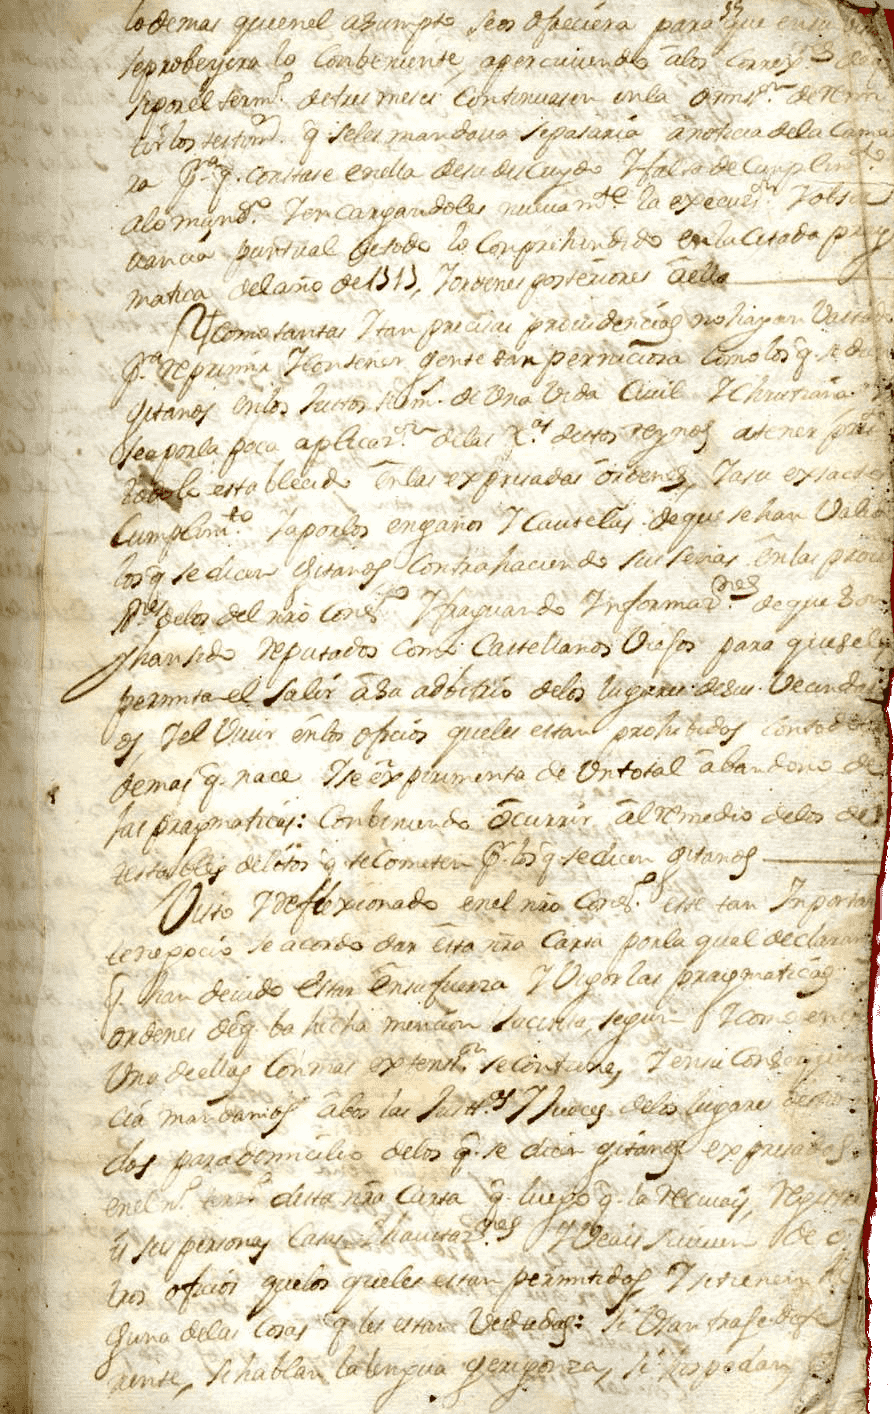 lo demas que en el asumpto se os ofreciera para que en su
se probeyera lo conbeniente, aperciuiendo a los Correx.res
si por el term.o de tres meses continuasen en la omis.on de remi
tir los testim.os q. se les mandaua se pasaria a noticia de la Cama
ra p.a q. constase en ella de su descuydo y falta de cumplim.to
a lo mand.o y encargandoles nuevam.te la execuz.on y obser
uancia puntual de todo lo comprehendido en la citada prag
matica del año de 1717, y ordenes posteriores a ella
Y como tantas y tan precisas prouidencias no hayan bastado
p.a reprimir y contener gente tan perniciosa como los q. se dicen
gitanos en los justos lim.s de una vida Civil y Christiana
sea por la poca aplicaz.on de las J.as destos reynos a tener
establecido en las expresadas ordenes, y a su exsacto
cumplim.to ya por los engaños y cautelas de que se han valido
los q. se dicen gitanos contrahaciendo sus señas en las prouis
nes de los del nro Cons.o y fraguando Informaz.nes de que son
y han sido reputados como Castellanos Viejos para que se les
permita el salir a su adbitrio de los lugares de sus vecindad
es, y el viuir en los oficios que les estan prohibidos con todo
demas q. nace y se experimenta de un total abandono de
las pragmaticas: conbiniendo ocurrir al remedio de los de
testables delitos q. se cometen p.r los q. se dicen gitanos
Visto y reflexionado en el nro Cons.o este tan Importan
te negocio se acordo dar esta nra Carta por la qual declaramos
q. han deuido estar en su fuerza y vigor las pragmaticas
ordenes de q. ba hecha mencion sucinta, segun y como en
una de ellas con mas extens.on se contiene, y en su consequen
cia mandamos a bos las Justt.as y Jueces de los lugares
dos para domicilio de los q. se dicen gitanos expresados
en el desta nra Carta q. luego q. la reciuais, registre
is sus personas casas y hauitaz.nes y veais si viuen de o
tros oficios que los que les estan permitidos, y si tienen al
guna de las cosas q. les estan vedadas: si usan traje dife
rente, si hablan la lengua gerigonza, si